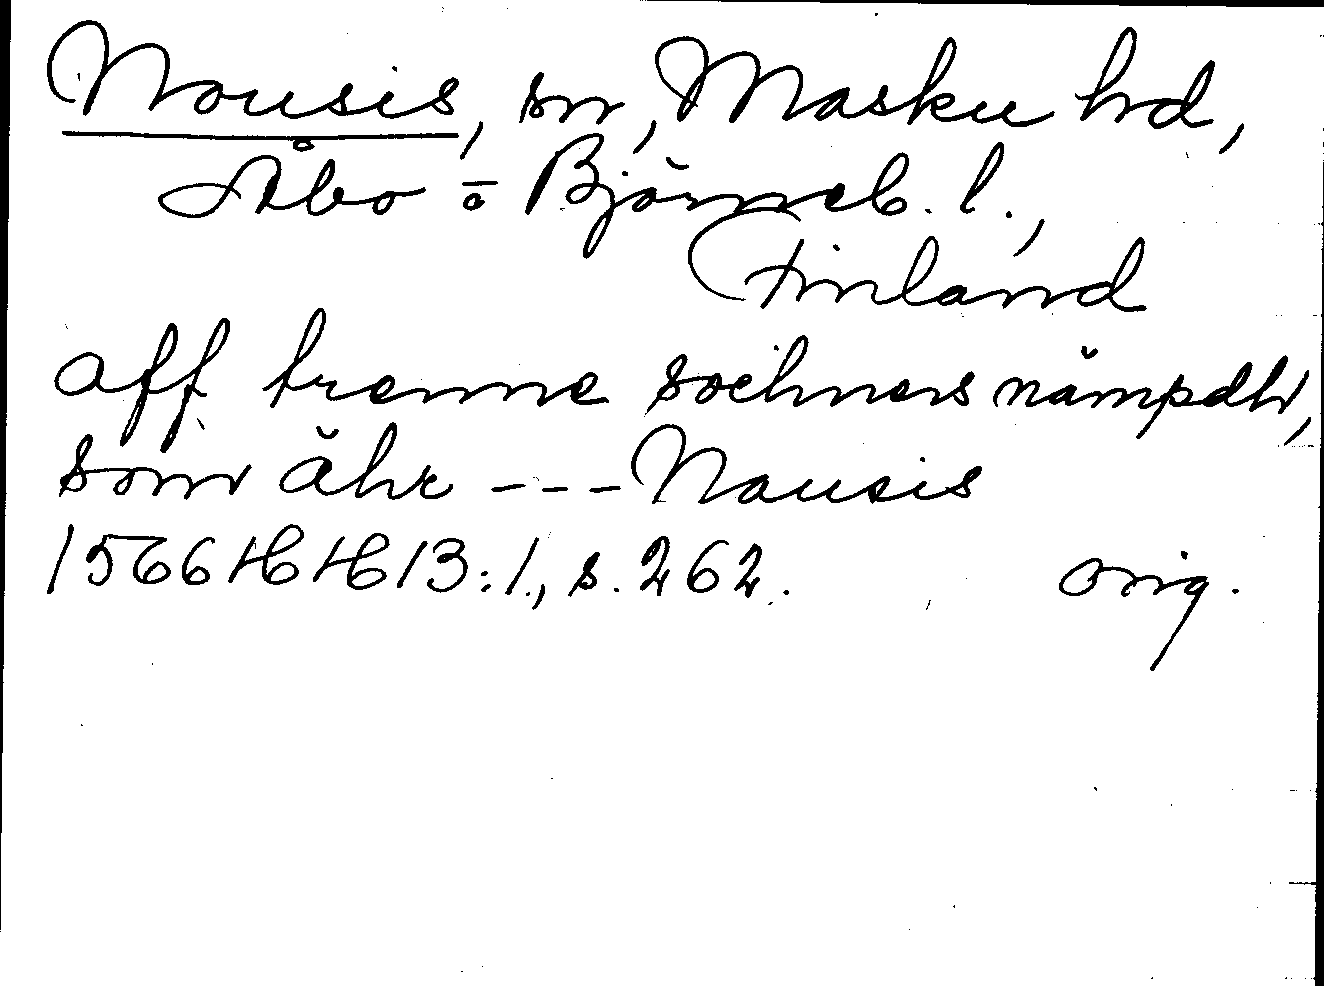 Nousis, sn, Masku hd,
Åbo o Björneb. l.,
Finland
aff trenne sochners nämpdh,
som ähr --- Nausis
1566 HH 13:1, s. 262. orig.